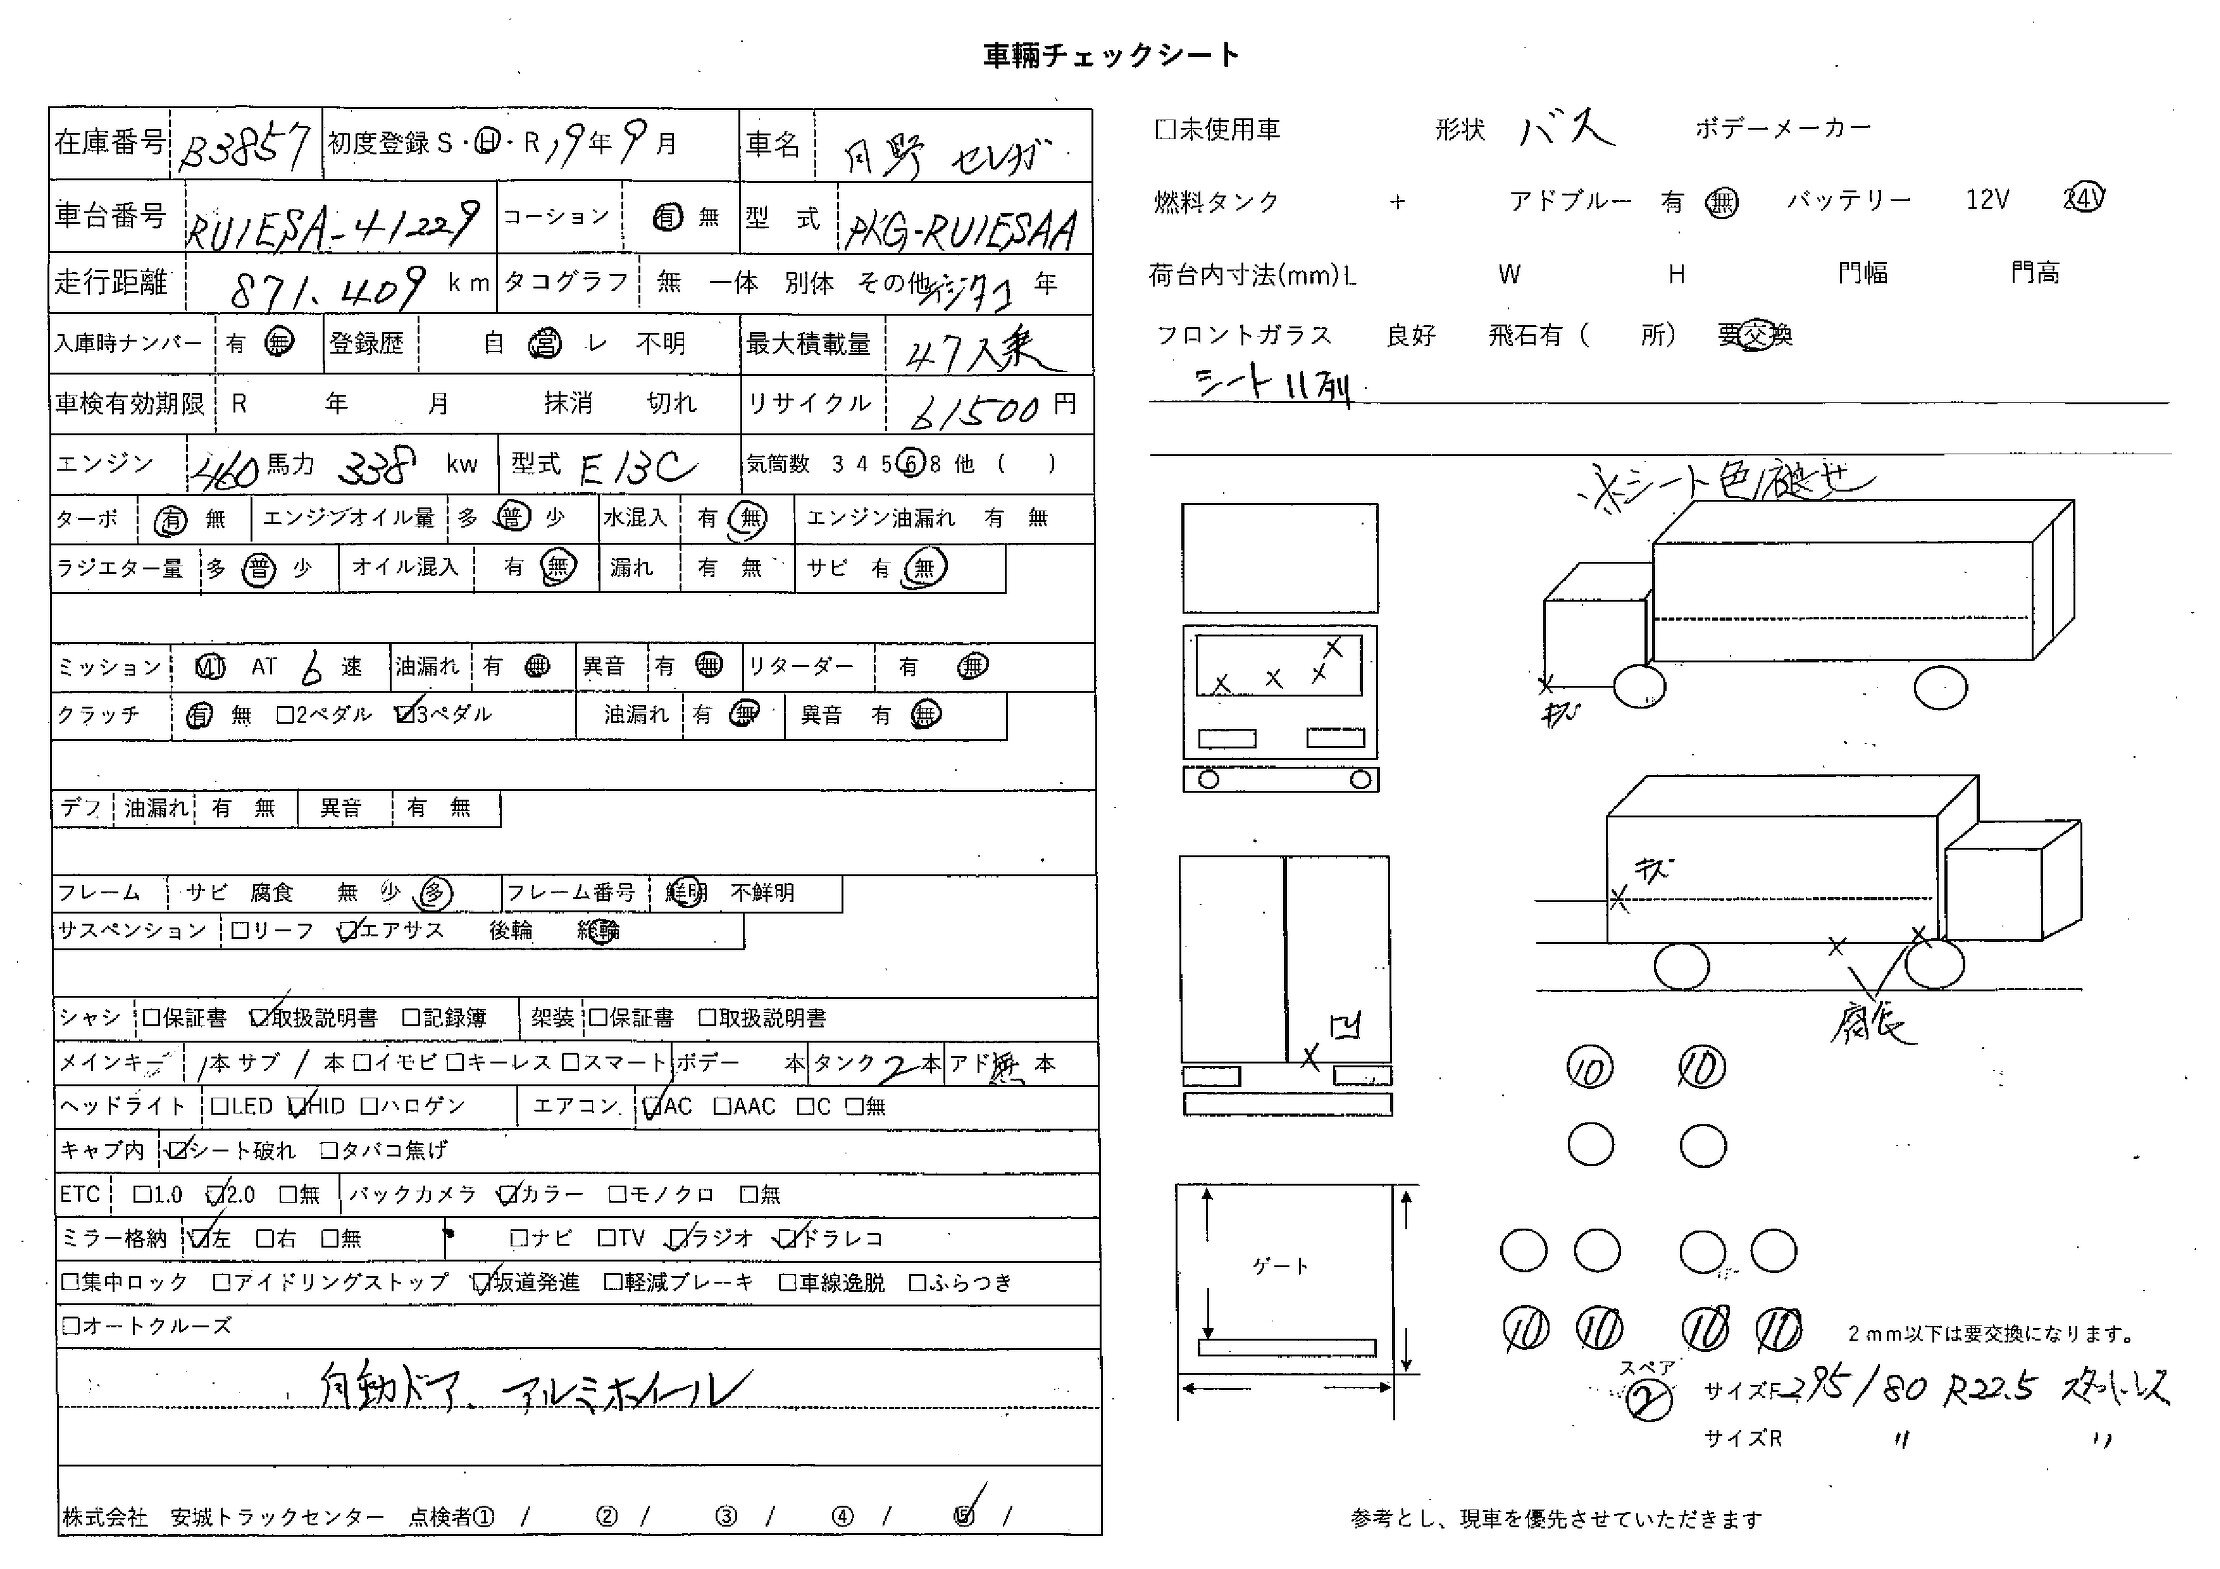 車輛チェックシート
在庫番号 B3857 初度登録 S・Ⓗ・R 19年 9月 車名 日野 セレガ
車台番号 RU1ESA-41229 コーション 有 無 型 式 PKG-RU1ESAA
走行距離 871.409 km タコグラフ 無 一体 別体 その他 デジタコ 年
入庫時ナンバー 有 無 登録歴 自 営 レ 不明 最大積載量 47人乗
車検有効期限 R 年 月 抹消 切れ リサイクル 61500 円
エンジン 460 馬力 338 kw 型式 E13C 気筒数 3 4 5 6 8 他 ( )
ターボ 有 無 エンジンオイル量 多 普 少 水混入 有 無 エンジン油漏れ 有 無
ラジエター量 多 普 少 オイル混入 有 無 漏れ 有 無 サビ 有 無
ミッション MT AT 6 速 油漏れ 有 無 異音 有 無 リターダー 有 無
クラッチ 有 無 □2ペダル ☑3ペダル 油漏れ 有 無 異音 有 無
デフ 油漏れ 有 無 異音 有 無
フレーム サビ 腐食 無 少 多 フレーム番号 鮮明 不鮮明
サスペンション □リーフ ☑エアサス 後輪 総輪
シャシ □保証書 ☑取扱説明書 □記録簿 架装 □保証書 □取扱説明書
メインキー 1本 サブ 1 本 □イモビ □キーレス □スマート ボデー 本 タンク 2 本 アド 無 本
ヘッドライト □LED ☑HID □ハロゲン エアコン ☑AC □AAC □C □無
キャブ内 ☑シート破れ □タバコ焦げ
ETC □1.0 ☑2.0 □無 バックカメラ ☑カラー □モノクロ □無
ミラー格納 ☑左 □右 □無 □ナビ □TV ☑ラジオ ☑ドラレコ
□集中ロック □アイドリングストップ ☑坂道発進 □軽減ブレーキ □車線逸脱 □ふらつき
□オートクルーズ
自動ドア、アルミホイール
株式会社 安城トラックセンター 点検者① / ② / ③ / ④ / ⑤ /
□未使用車 形状 バス ボデーメーカー
燃料タンク + アドブルー 有 無 バッテリー 12V 24V
荷台内寸法(mm) L W H 門幅 門高
フロントガラス 良好 飛石有 ( 所) 要交換
シート11列
※シート色褪せ
キズ
キズ
腐食
凹
10 10
ゲート
10 10 10 10
2mm以下は要交換になります。
スペア
② サイズF 295/80 R22.5 スタットレス
サイズR 〃 〃
参考とし、現車を優先させていただきます